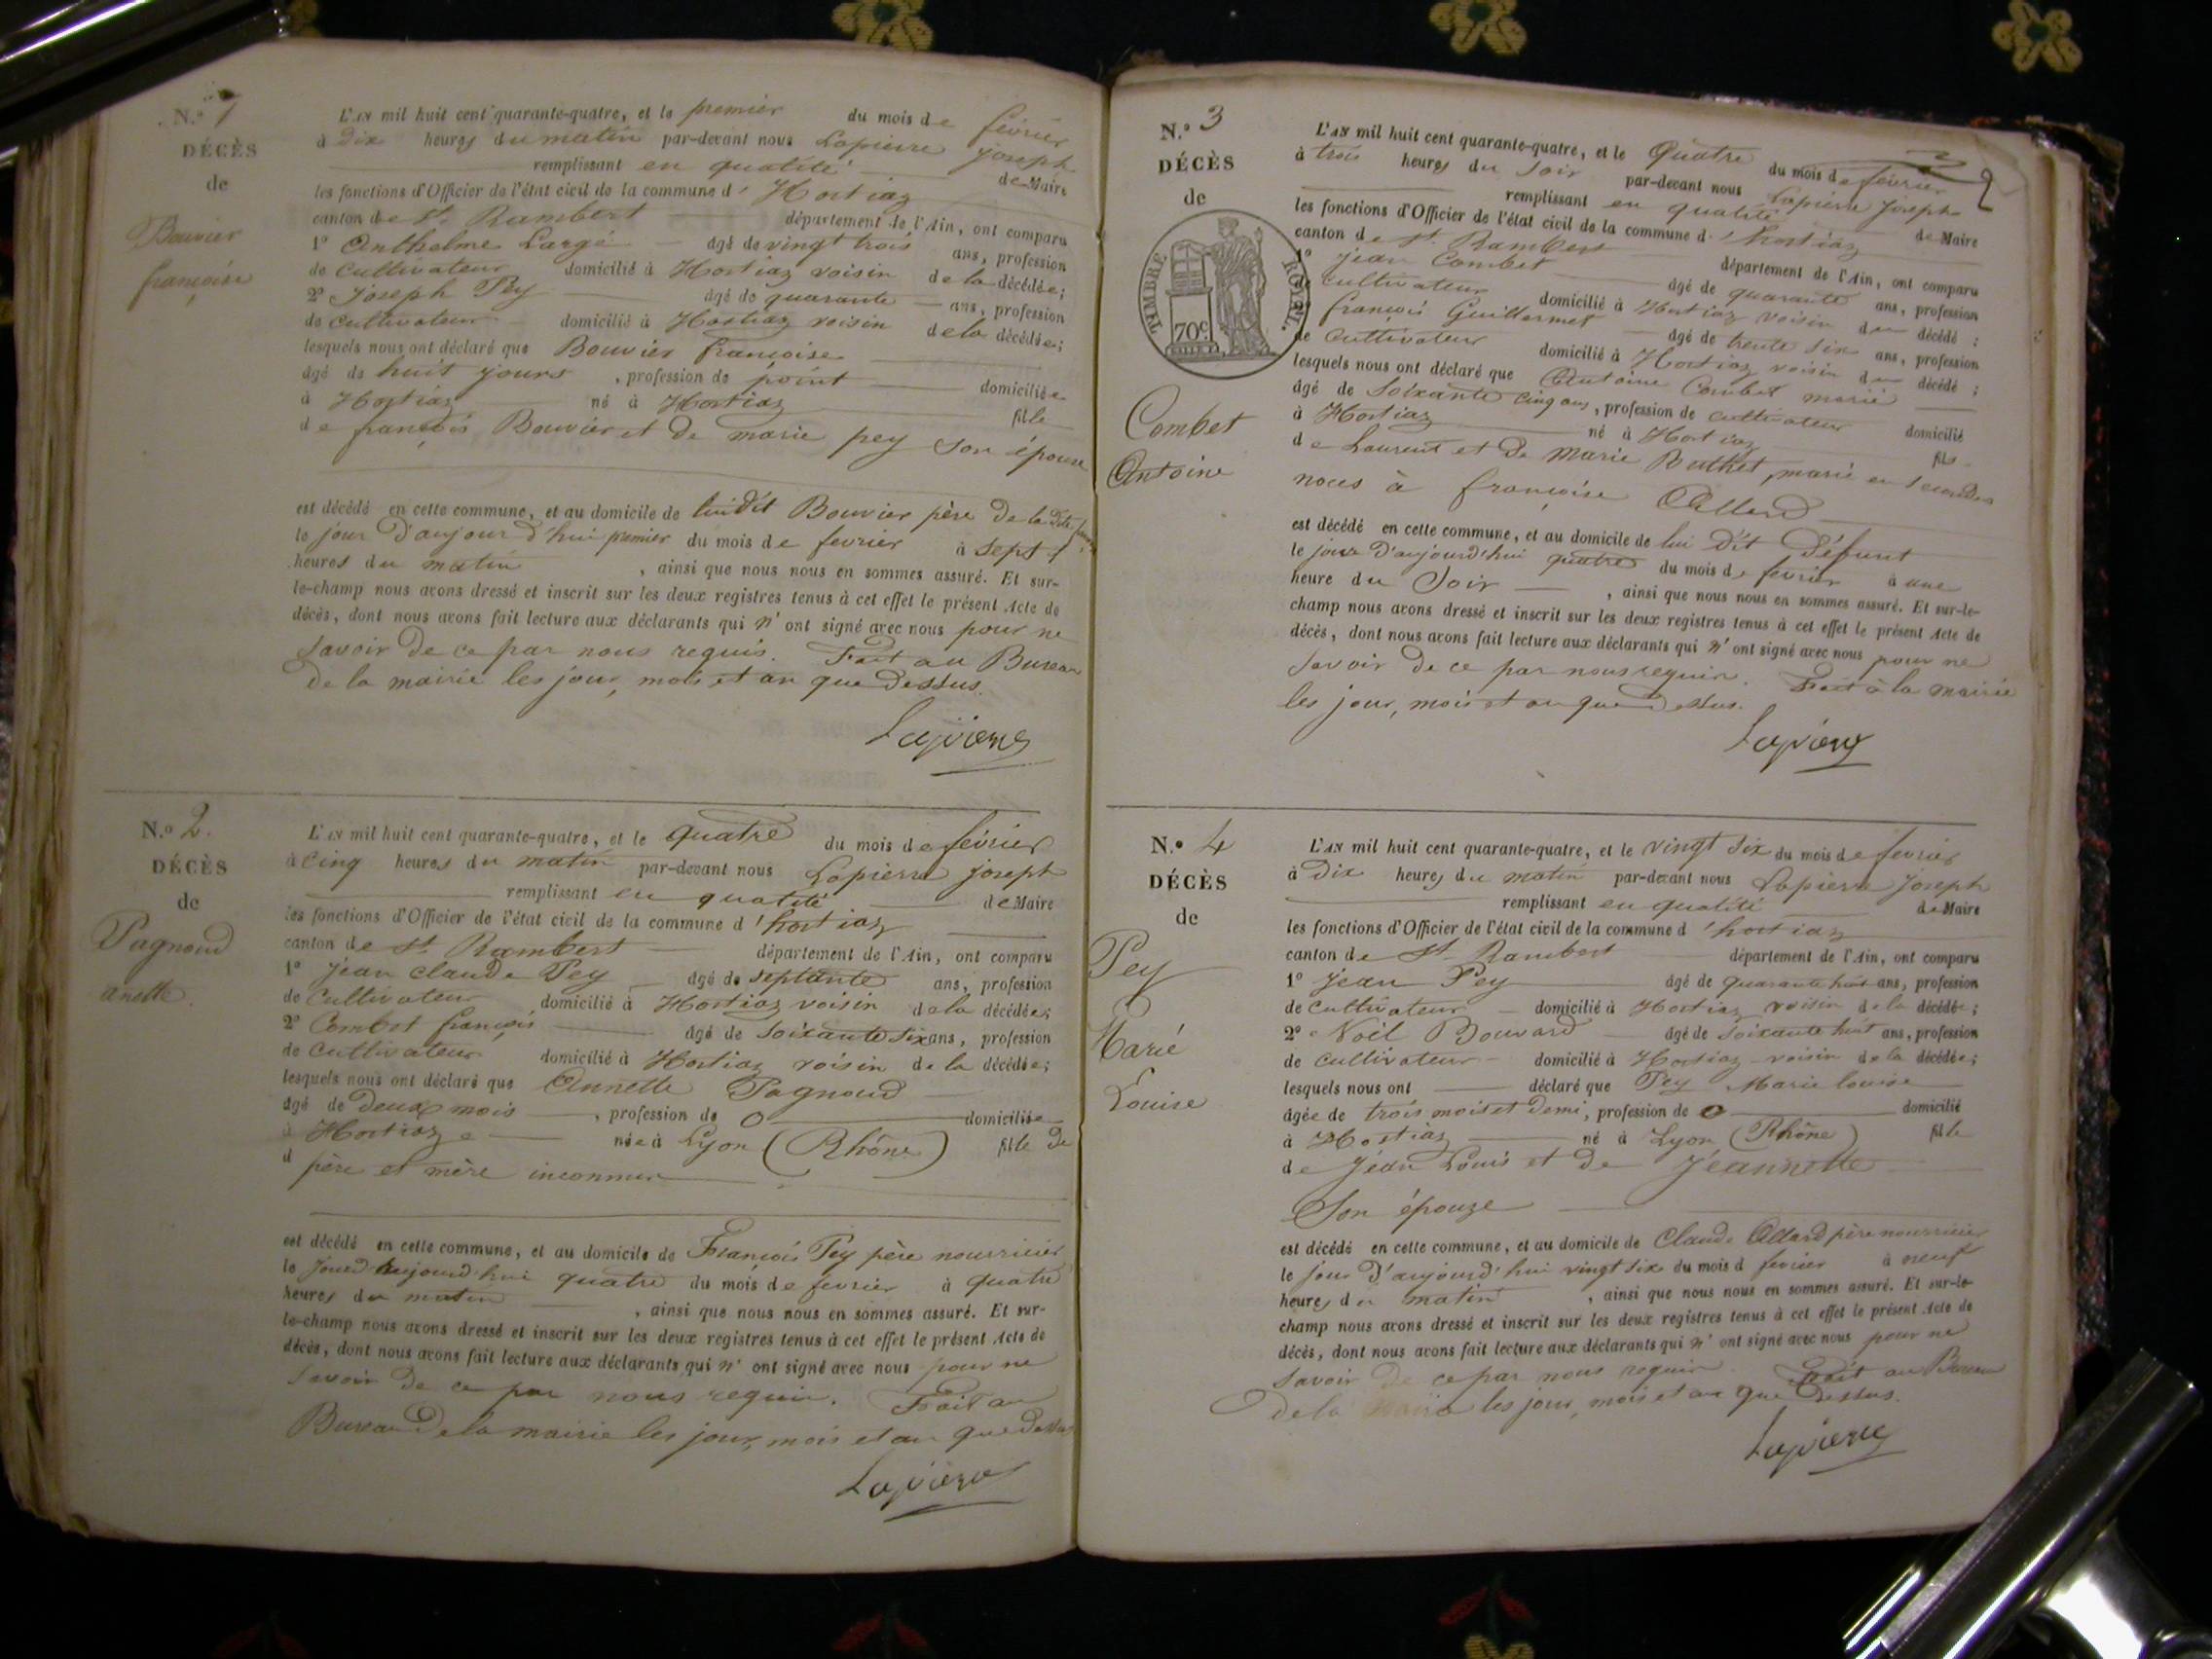 N.º 1
DÉCÈS
de
Bouvier
françoise
L'AN mil huit cent quarante-quatre, et le premier du mois de février
à Dix heures du matin par-devant nous Lapierre Joseph
remplissant en qualité de Maire
les fonctions d'Officier de l'état civil de la commune d' Hostiaz
canton de St. Rambert département de l'Ain, ont comparu
1º Anthelme Largé âgé de vingt trois ans, profession
de cultivateur domicilié à Hostiaz voisin de la décédée;
2º Joseph Pey âgé de quarante ans, profession
de cultivateur domicilié à Hostiaz voisin de la décédée;
lesquels nous ont déclaré que Bouvier françoise
âgé de huit jours, profession de point domiciliée
à Hostiaz né à Hostiaz fille
de françois Bouvier et de marie pey son épouse
est décédé en cette commune, et au domicile de luidit Bouvier père de la dite
le jour D'aujourd'hui premier du mois de fevrier à sept
heures du matin, ainsi que nous nous en sommes assuré. Et sur-
le-champ nous avons dressé et inscrit sur les deux registres tenus à cet effet le présent Acte de
décès, dont nous avons fait lecture aux déclarants qui n' ont signé avec nous pour ne
savoir de ce par nous requis. Fait au Bureau
De la mairie les jour, mois et an que Dessus.
Lapierre
N.º 2.
DÉCÈS
de
Pagnoud
anette.
L'AN mil huit cent quarante-quatre, et le quatre du mois de février
à cinq heures du matin par-devant nous Lapierre Joseph
remplissant en qualité de Maire
les fonctions d'Officier de l'état civil de la commune d'hostiaz
canton de St. Rambert département de l'Ain, ont comparu
1º Jean claude Pey âgé de septante ans, profession
de cultivateur domicilié à Hostiaz voisin de la décédée;
2º Combet françois âgé de soixante six ans, profession
de cultivateur domicilié à Hostiaz voisin de la décédée;
lesquels nous ont déclaré que Annette Pagnoud
âgé de Deux mois, profession de 0 domiciliée
à Hostiaz née à Lyon (Rhône) fille de
d père et mère inconnus
est décédé en cette commune, et au domicile de François Pey père nourricier
le jour d'aujourd'hui quatre du mois de fevrier à quatre
heures du matin, ainsi que nous nous en sommes assuré. Et sur-
le-champ nous avons dressé et inscrit sur les deux registres tenus à cet effet le présent Acte de
décès, dont nous avons fait lecture aux déclarants qui n' ont signé avec nous pour ne
savoir de ce par nous requis. Fait au
Bureau De la mairie les jour, mois et an que dessus
Lapierre
N.º 3
DÉCÈS
de
TIMBRE ROYAL.
70c
Combet
Antoine
L'AN mil huit cent quarante-quatre, et le Quatre du mois de février
à trois heures du soir par-devant nous Lapierre Joseph
remplissant en qualité de Maire
les fonctions d'Officier de l'état civil de la commune d'hostiaz
canton de St. Rambert département de l'Ain, ont comparu
1º Jean Combet âgé de quarante ans, profession
de cultivateur domicilié à Hostiaz voisin du décédé;
françois Guillermet âgé de trente six ans, profession
de cultivateur domicilié à Hostiaz voisin du décédé;
lesquels nous ont déclaré que Antoine Combet marié
âgé de soixante cinq ans, profession de cultivateur domicilié
à Hostiaz né à Hostiaz fils
de Laurent et de Marie Buthet, marié en secondes
noces à françoise Allard
est décédé en cette commune, et au domicile de lui Dit Défunt
le jour D'aujourd'hui quatre du mois de fevrier à une
heure du Soir, ainsi que nous nous en sommes assuré. Et sur-le-
champ nous avons dressé et inscrit sur les deux registres tenus à cet effet le présent Acte de
décès, dont nous avons fait lecture aux déclarants qui n' ont signé avec nous pour ne
savoir de ce par nous requis. Fait à la mairie
les jour, mois et an que Dessus.
Lapierre
N.º 4
DÉCÈS
de
Pey
Marie
Louise
L'AN mil huit cent quarante-quatre, et le vingt six du mois de fevrier
à Dix heures du matin par-devant nous Lapierre Joseph
remplissant en qualité de Maire
les fonctions d'Officier de l'état civil de la commune d'hostiaz
canton de St. Rambert département de l'Ain, ont comparu
1º Jean Pey âgé de quarante huit ans, profession
de cultivateur domicilié à Hostiaz voisin de la décédée;
2º Noël Bouvard âgé de soixante huit ans, profession
de cultivateur domicilié à Hostiaz voisin de la décédée;
lesquels nous ont déclaré que Pey Marie louise
âgée de trois mois et Demi, profession de 0 domicilié
à Hostiaz né à Lyon (Rhône) fille
de Jean Louis et de Jeannette
Son épouze
est décédé en cette commune, et au domicile de Claude Allard père nourricier
le jour D'aujourd'hui vingt six du mois d fevrier à neuf
heures du matin, ainsi que nous nous en sommes assuré. Et sur-le-
champ nous avons dressé et inscrit sur les deux registres tenus à cet effet le présent Acte de
décès, dont nous avons fait lecture aux déclarants qui n' ont signé avec nous pour ne
savoir de ce par nous requis. Fait au Bureau
De la mairie les jour, mois et an que Dessus.
Lapierre